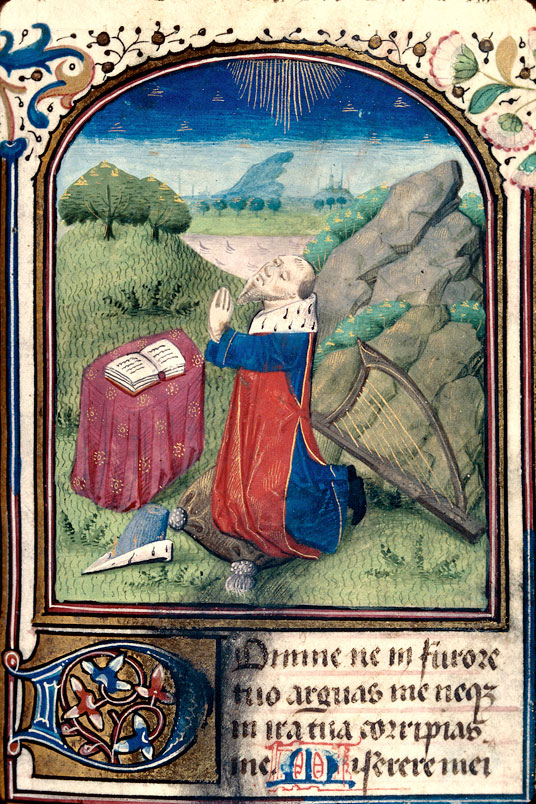 Domine ne in furore
tuo arguas me neqz
in ira tua corripias
me. Miserere mei